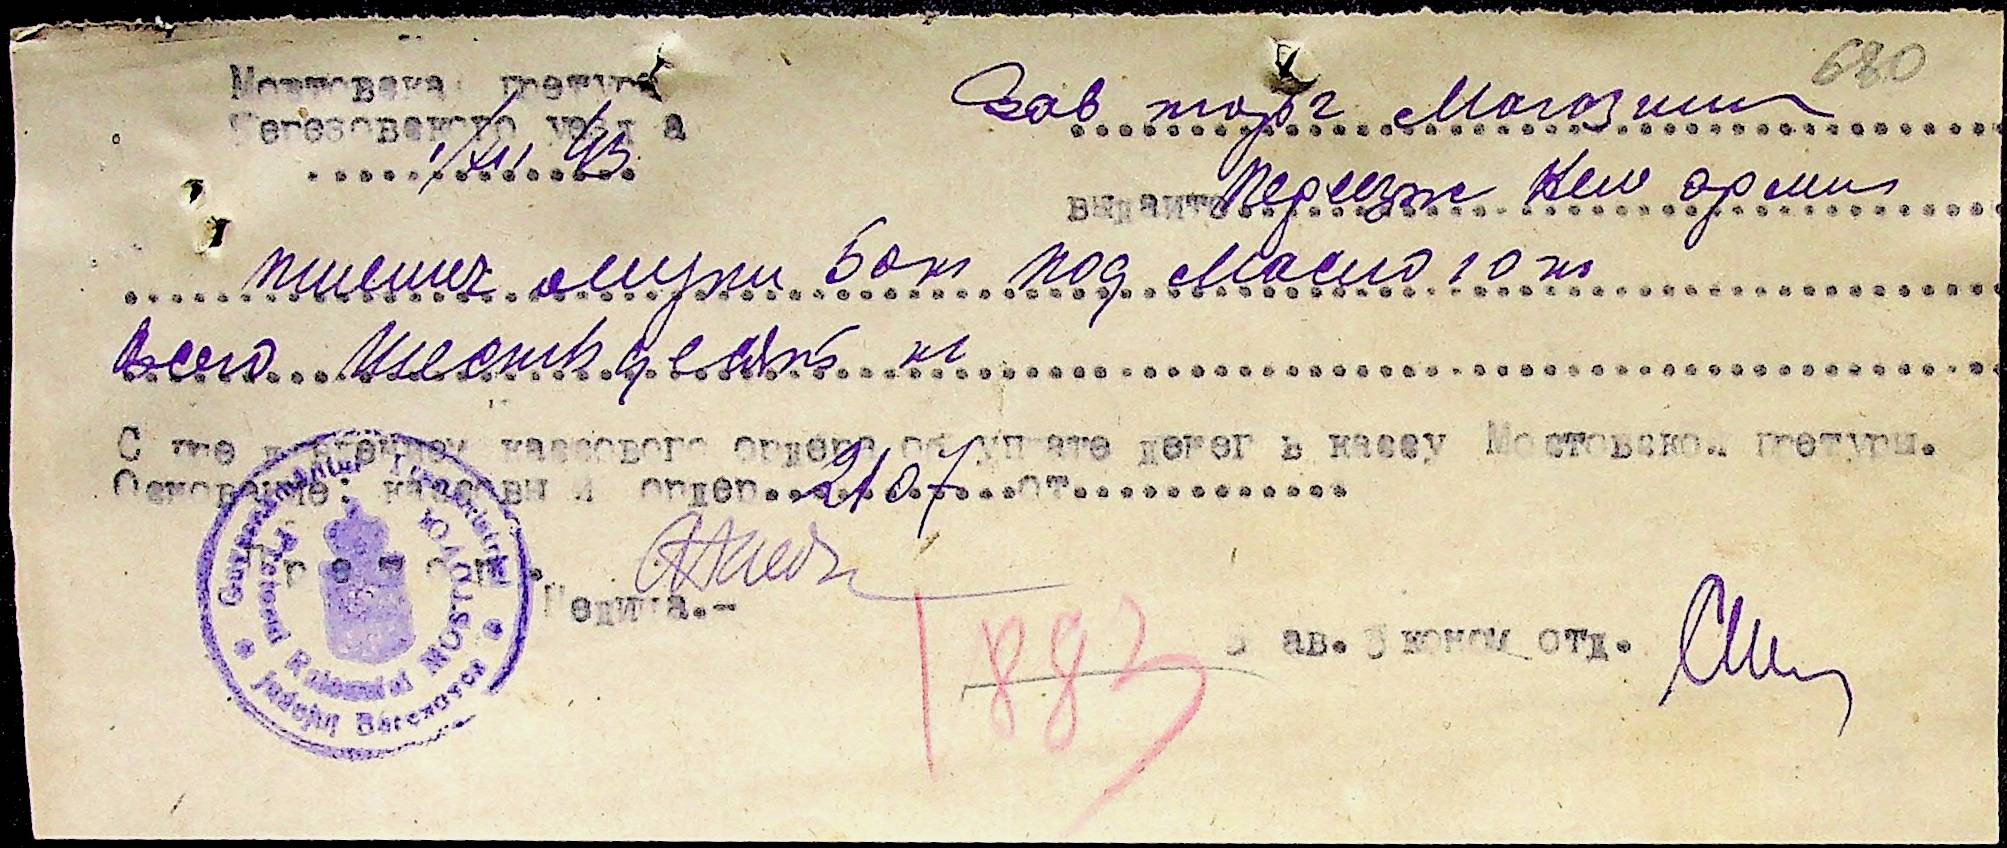 680
Мостовская претура
Березовского уезда
1/XII 43
Зав торг Магазина
выдайте
пшенич муки 50 кг под Масло 10 кг
Всего шестьдесят кг
С последующем кассового ордера об уплате денег в кассу Мостовской претуры.
Основание: кассовый ордер 2107 от
Претор.
Печица.-
Зав. Эконом отд.
1883
Guvernământul Transnistriei
Pretura Raionului MOSTOVOI
Județul Berezovca